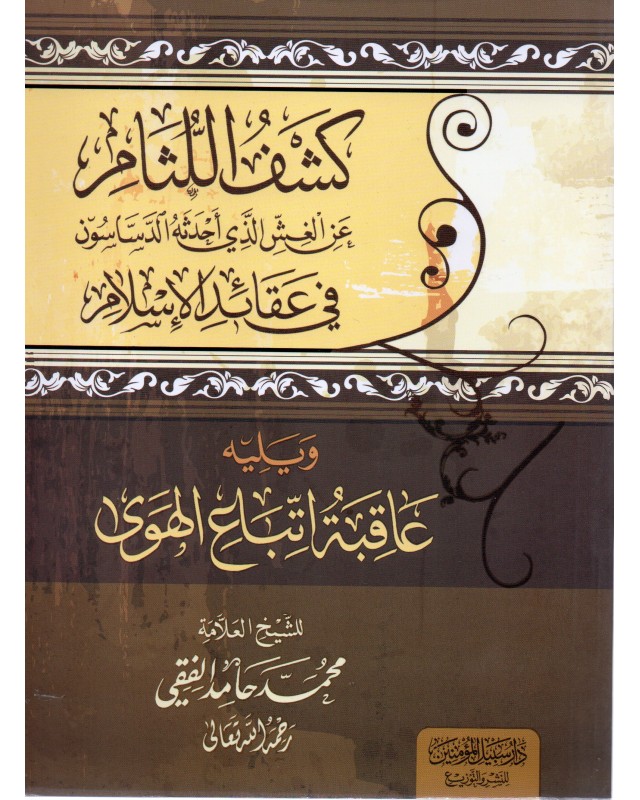 كَشْفُ اللِّثَامِ
عَنِ الغِشِّ الَّذِي أَحْدَثَهُ الدَّسَّاسُونَ
فِي عَقَائِدِ الإِسْلَامِ
وَيَلِيهِ
عَاقِبَةُ اتِّبَاعِ الهَوَى
للشَّيْخِ العَلَّامَة
محمد حَامِد الفِقِي
رَحِمَهُ اللهُ تَعَالَى
دَار سَبِيل المُؤْمِنِين
للنَّشْرِ وَالتَّوْزِيع